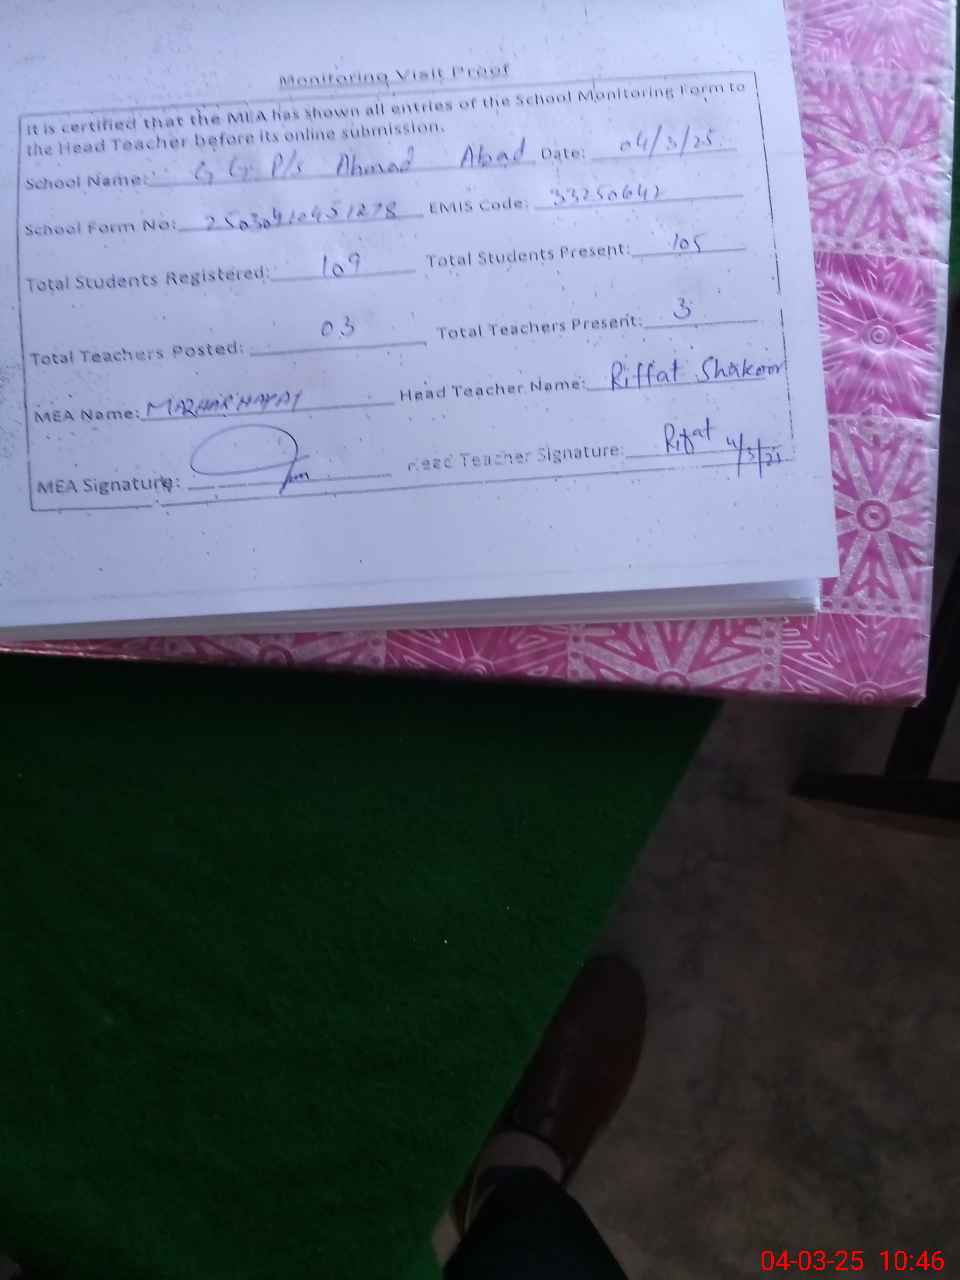 Monitoring Visit Proof
It is certified that the MEA has shown all entries of the School Monitoring Form to
the Head Teacher before its online submission.
School Name: G G P/S Ahmad Abad Date: 04/3/25
School Form No: EMIS Code: 33250642
Total Students Registered: 109 Total Students Present: 105
Total Teachers Posted: 03 Total Teachers Present: 3
MEA Name: MAZHAR HAYAT Head Teacher Name: Riffat Shakoor
MEA Signature: Head Teacher Signature: Rifat 4/3/25
04-03-25 10:46